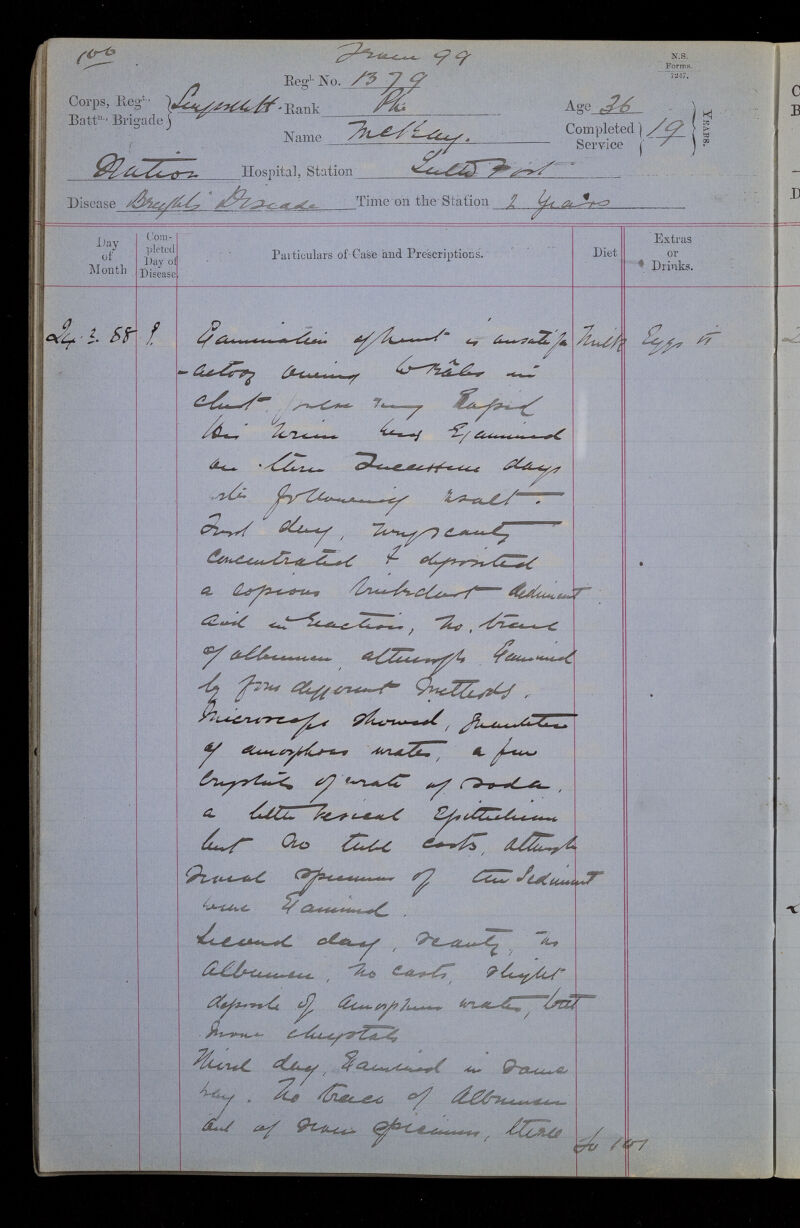 100
From 99
N.S.
Forms.
7247.
Regtl. No. 1379
Corps, Regtl.
Battn. Brigade
Rank Pte
Age 36
Name McKay.
Completed
Service 19 YEARS.
Station Hospital, Station
Disease Brights Disease Time on the Station 2 Years
Day of Month
Completed Day of Disease.
Particulars of Case and Prescriptions.
Diet
Extras or Drinks.
24.3.88 Examination of heart is unsatisfa Milk Eggs ii
-actory owing to Râles in
chest, pulse very Rapid
his urine was Examined
on three Successive days
the following result -
First day, very scanty
concentrated & deposited
a copious brickdust Sediment
acid in reaction, no trace
of albumen, although Examined
by four different Methods.
Microscope showed, quantities
of amorphous urates, a few
Crystals of urate of soda.
a little vesical Epithelium
but no tube casts, although
several specimens of the Sediment
were Examined.
Second day, scanty, no
Albumen, no casts, slight
deposit of amorphous urates, but
more chrystals
Third day, Examined in same
way. No trace of Albumen
out of seven specimens, three
to 101